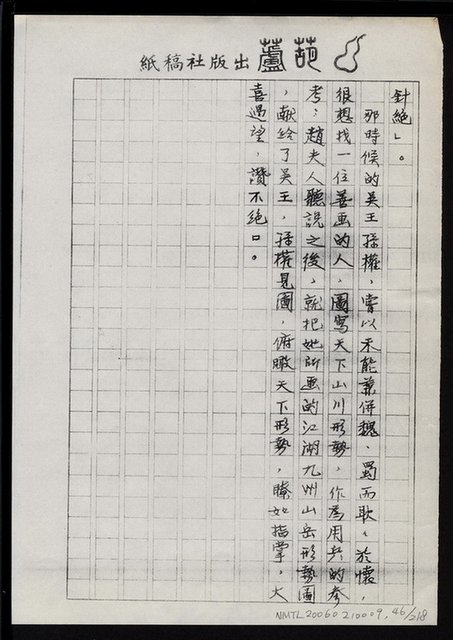 紙稿社版出蘆葫
針絕」。
那時候的吳王孫權,嘗以未能兼併魏、蜀而耿耿於懷,
很想找一位善画的人,圖寫天下山川形勢,作為用兵的參
考;趙夫人聽說之後,就把她所画的江湖九州山岳形勢圖
,献給了吳王,孫權見圖,俯瞰天下形勢,瞭如指掌,大
喜過望,讚不絕口。
NMTL20060210009, 46/218